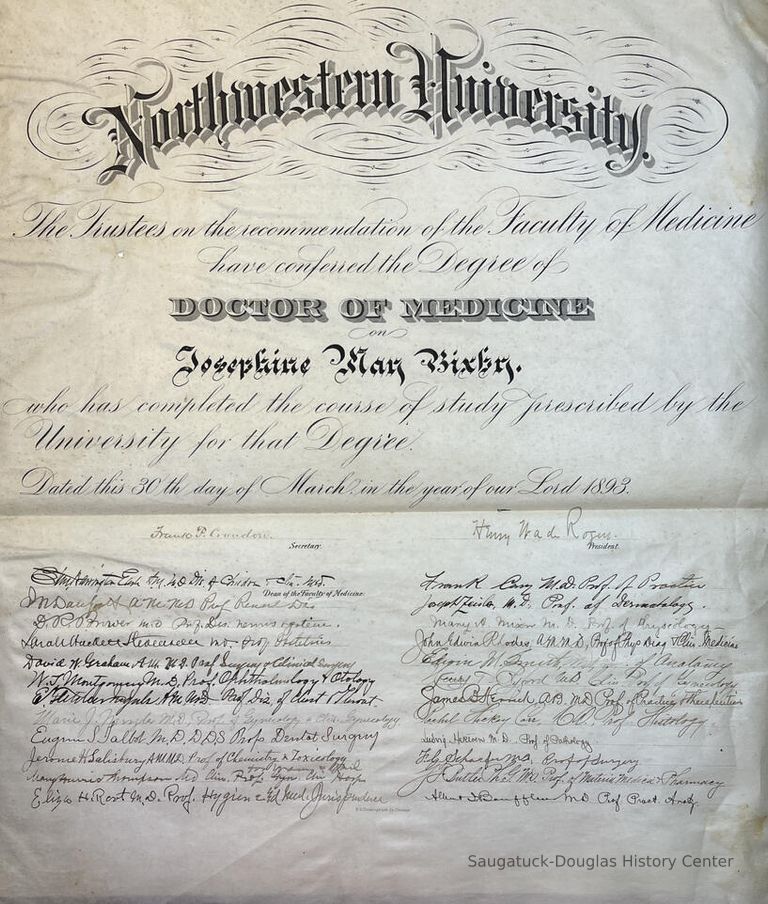 Northwestern University.
The Trustees on the recommendation of the Faculty of Medicine
have conferred the Degree of
DOCTOR OF MEDICINE
on
Josephine May Bixby.
who has completed the course of study prescribed by the
University for that Degree.
Dated this 30th day of March in the year of our Lord 1893.
Frank P. Crandon.
Secretary.
Henry Wade Rogers.
President.
Dean of the Faculty of Medicine.
I.N. Danforth A.M. M.D. Prof. Renal Dis.
M.D. Prof. Dis. nervous system.
Sarah Hackett Stevenson M.D. Prof. Obstetrics
David W. Graham, A.M. M.D. Prof Surgery & Clinical Surgery
W.F. Montgomery M.D., Prof. Ophthalmology & Otology
A.M. M.D. Prof Dis. of Chest & Throat
Marie J. Mergler M.D. Prof. of Gynecology & Clin. Gynecology
Eugene S. Talbot M.D. D.D.S Prof. Dental Surgery
Jerome H. Salisbury A.M. M.D. Prof. of Chemistry & Toxicology
Mary Harris Thompson M.D. Clin. Prof.
Eliza H. Root M.D. Prof. Hygiene & Med. Jurisprudence
Frank Cary M.D. Prof. of Practice
Joseph Zeisler, M.D. Prof. of Dermatology.
Mary A. Mixer M.D. Prof. of Physiology
John Edwin Rhodes, A.M. M.D., Prof of Phys Diag & Clin. Medicine
Edwin M. Smith, of Anatomy
Henry T. Byford M.D. Clin Prof. Gynecology
James B. Herrick A.B. M.D. Prof of Practice & Therapeutics
Rachel Hickey Carr, M.D. Prof. Histology.
Ludvig Hektoen M.D. Prof. of Pathology
F.C. Schaefer M.D. Prof of Surgery
Prof. of Materia Medica & Pharmacy
M.D. Prof Pract. Anat.
Saugatuck-Douglas History Center